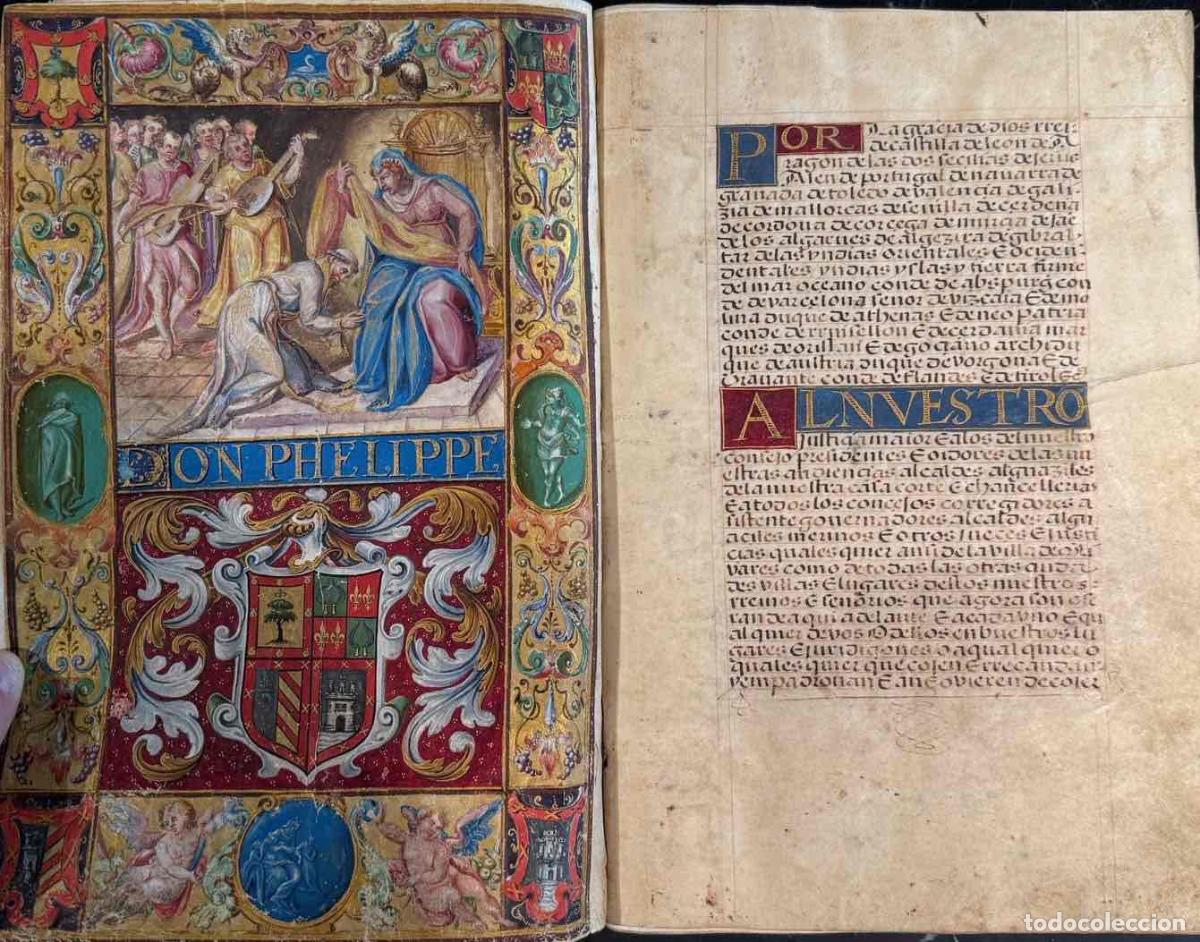 DON PHELIPPE
POR La gracia de dios rrei
de castilla de leon de A
ragon de las dos secilias de Jerus
Alen de portugal de navarra de
granada de toledo de valencia de gali
zia de mallorcas de sevilla de cerdena
de cordova de corcega de murcia de Jae
de los algarves de algezira de gibral
tar de las yndias orientales E ociden
dentales yndias yslas y tierra firme
del mar oceano conde de abspurg con
de de varcelona señor de vizcaia E de mo
lina duque de athenas E de neo patria
conde de rruisellon E de cerdania mar
ques de oristan E de gociano archidu
que de austria duque de vorgoña E de
bravante conde de flandes E de tirol Ec
AL NVESTRO
Justicia maior E a los del nuestro
consejo presidentes E oidores de las nu
estras audiencias alcaldes alguaziles
de la nuestra casa corte E chancellerias
E a todos los concejos corregidores a
sistente governadores alcaldes algu
aciles merinos E otros jueces E justi
cias quales quier ansi de la villa de
vares como de todas las otras ciuda
des villas E lugares de los nuestros
rreinos E señorios que agora son o se
ran de aqui adelante E a cada vno E qu
al quier de vos O dellos en buestros lu
gares E juridiçiones O a qual quier O
quales quier que cojen E rrecaudan
y enpadronan E an E ovieren de cojer
todocoleccion